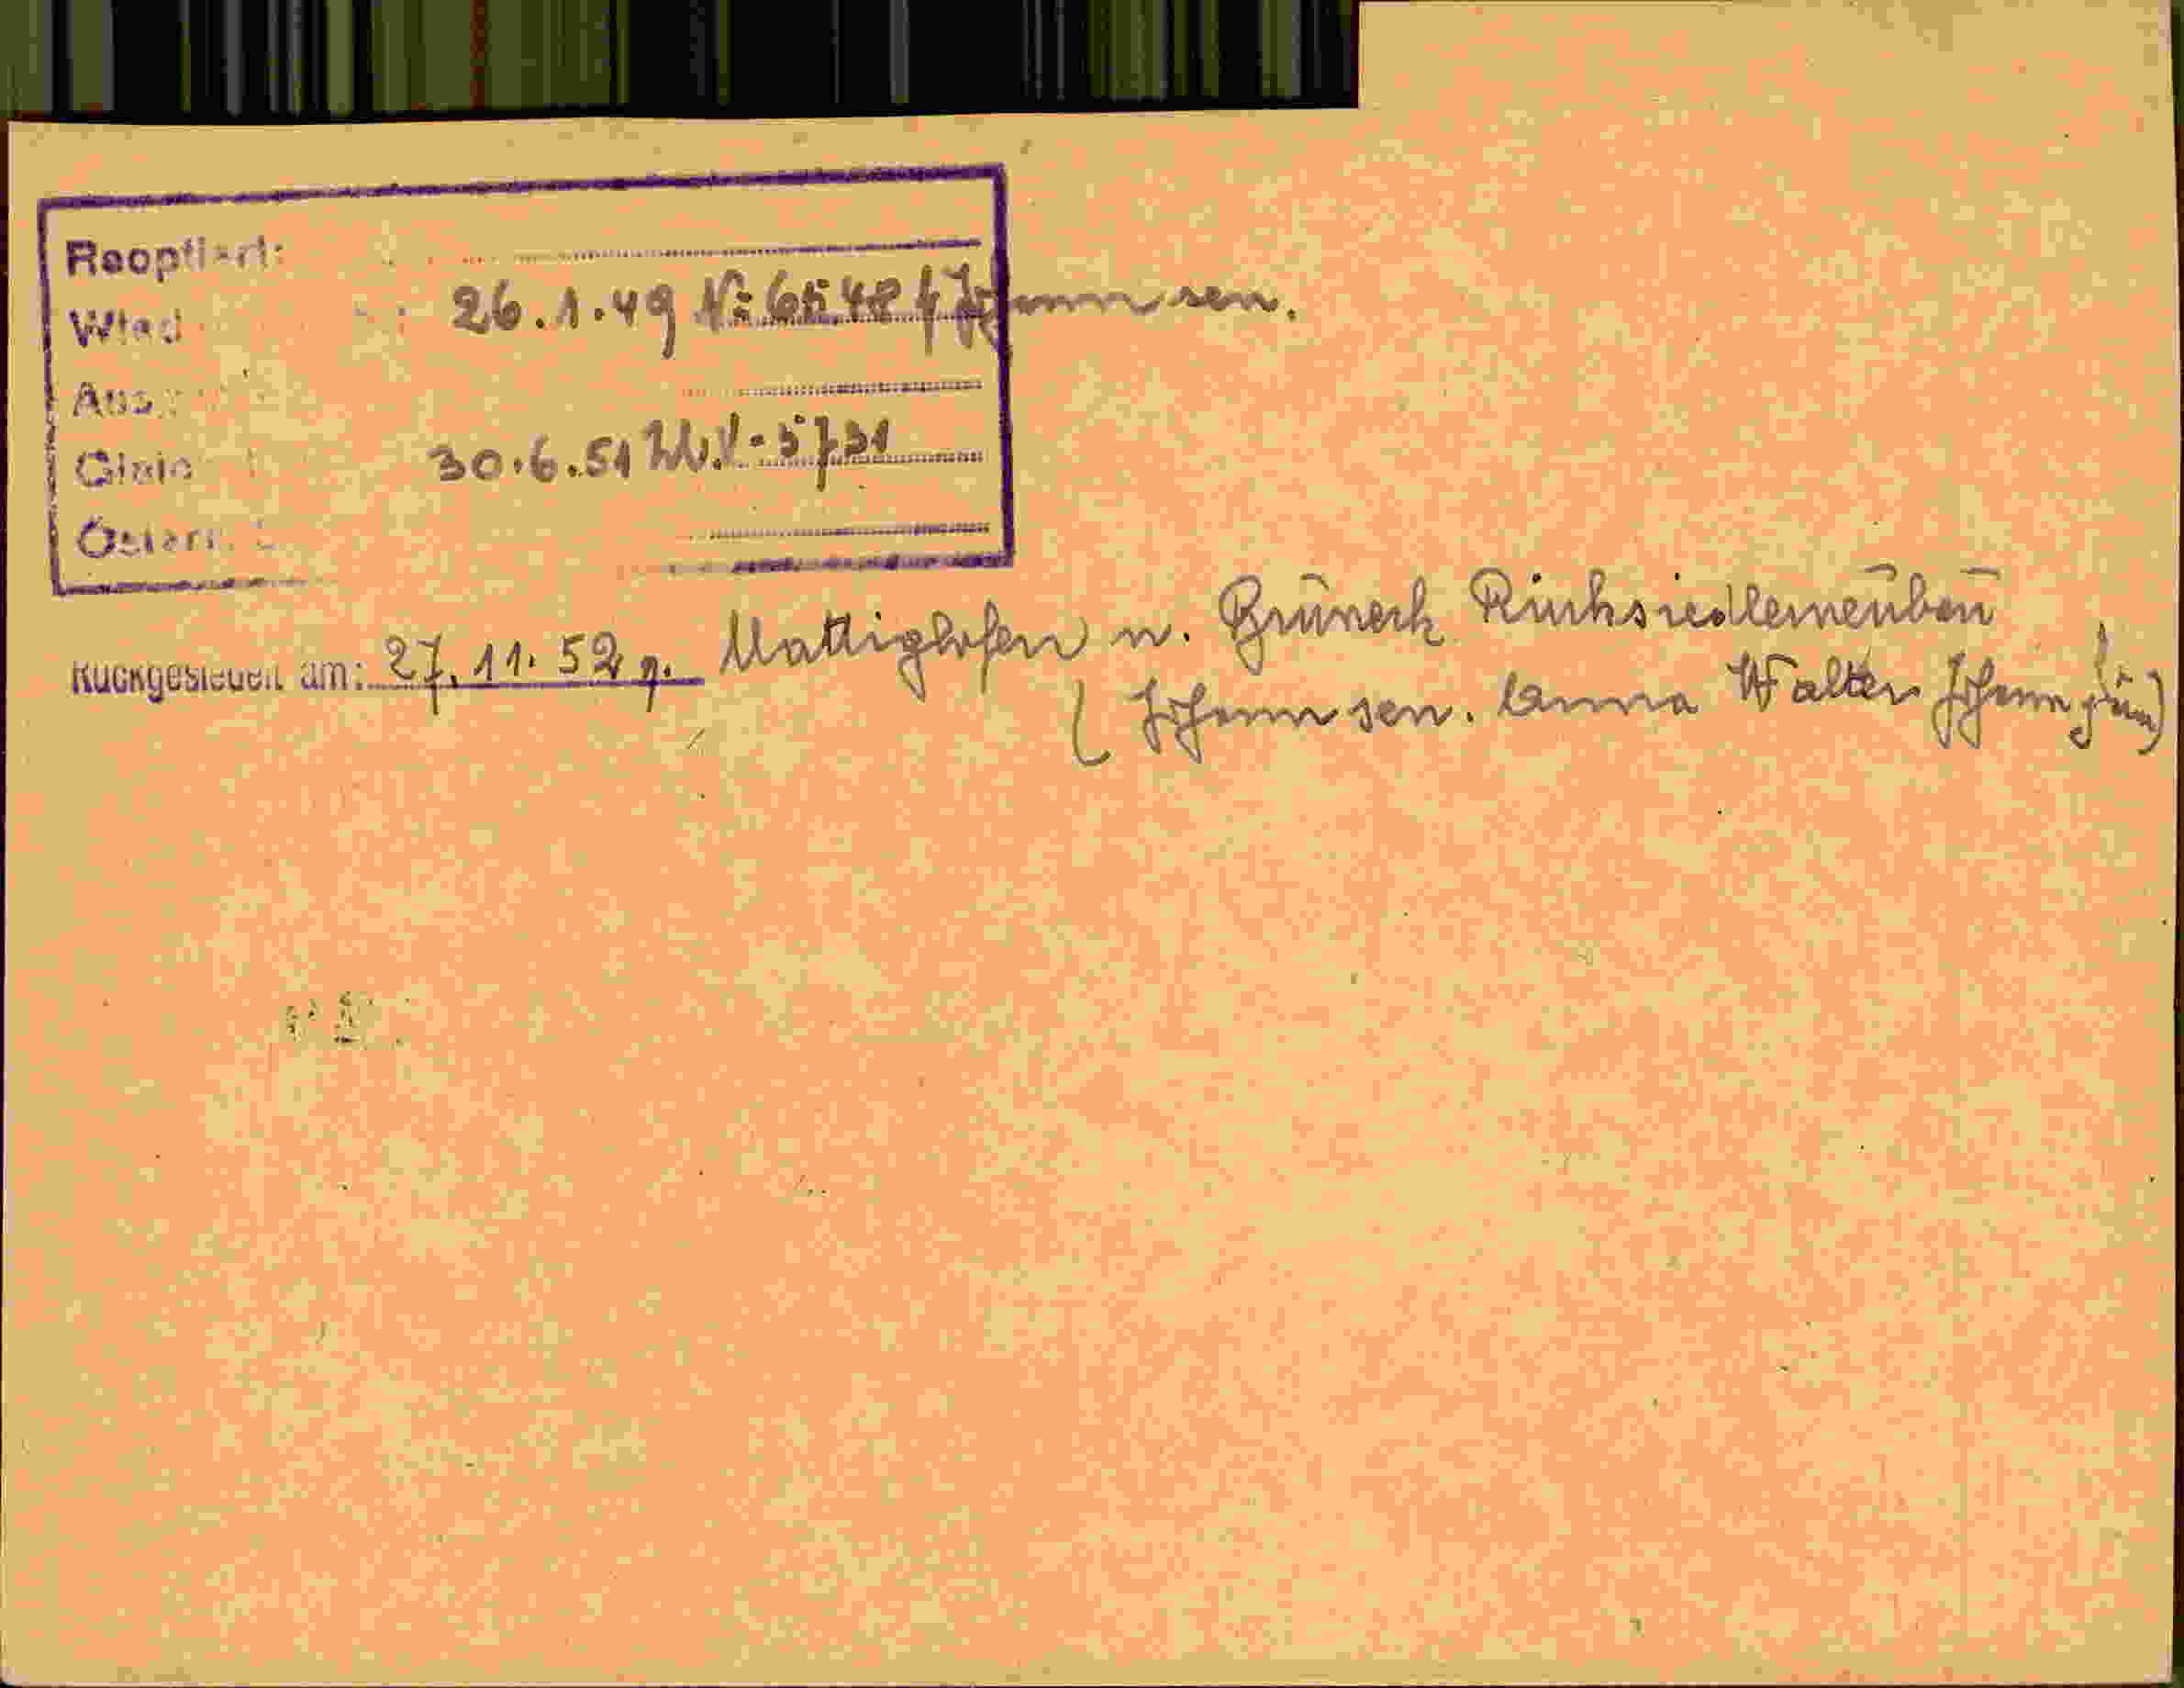 Reoptiert:
Wied 26.1.49 Johann sen.
Abg
Gleic 30.6.51 5731
Österr.
Rückgesiedelt am: 27.11.52 n. Mattighofen n. Bruneck Rücksiedlerneubau
(Johann sen. Anna Walter Johann jun)